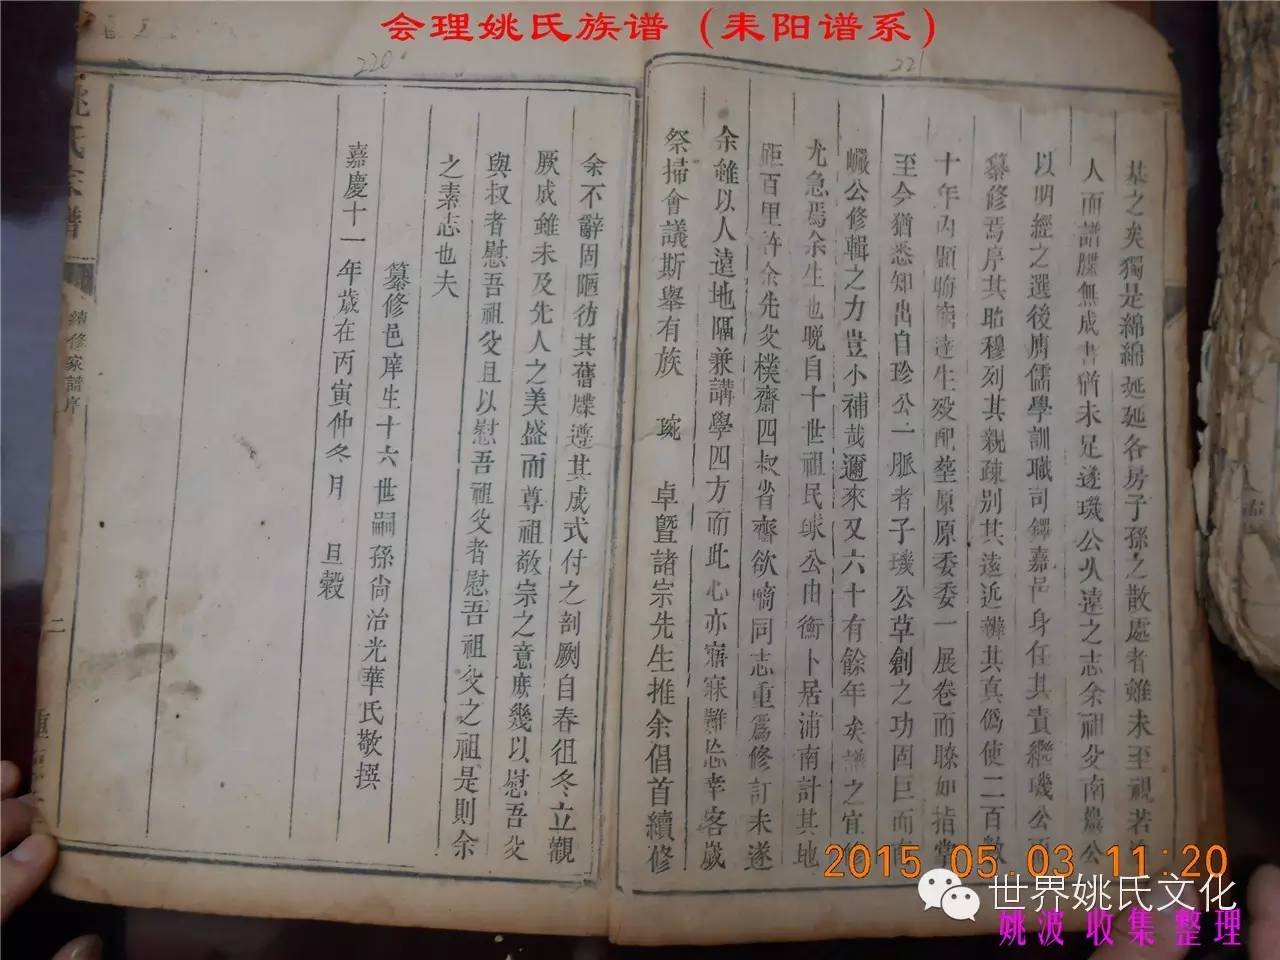 会理姚氏族谱（耒阳谱系）
220
221
基之矣獨是綿綿延延各房子孫之散處者雖未至視若
人而譜牒無成書猶未足遂璣公久遠之志余祖父南巖公
以明經之選後膺儒學訓職司鐸嘉邑身任其責繼璣公
纂修焉序其昭穆列其親疎别其遠近辨其真僞使二百數
十年内顯晦窮達生殁配塟原原委委一展卷而瞭如指掌
至今猶悉知出自珍公一脈者子璣公草創之功固巨而南
巖公修輯之力豈小補哉邇來又六十有餘年矣譜之宜
尤急焉余生也晚自十世祖民球公由衡卜居浦南計其地
距百里許余先父樸齋四叔省齋欲嗣同志重爲修訂未遂
余雖以人遠地隔兼講學四方而此心亦寤寐難忘幸客歲
祭掃會議斯舉有族 琬 卓暨諸宗先生推余倡首續修
余不辭固陋彷其舊牒遵其成式付之剖劂自春徂冬立觀
厥成雖未及先人之美盛而尊祖敬宗之意庶幾以慰吾父
與叔者慰吾祖父且以慰吾祖父者慰吾祖父之祖是則余
之素志也夫
纂修邑庠生十六世嗣孫尚治光華氏敬撰
嘉慶十一年歲在丙寅仲冬月 旦穀
姚氏宗譜
續修家譜序
二
重
2015 05 03 11:20
世界姚氏文化
姚波 收集整理